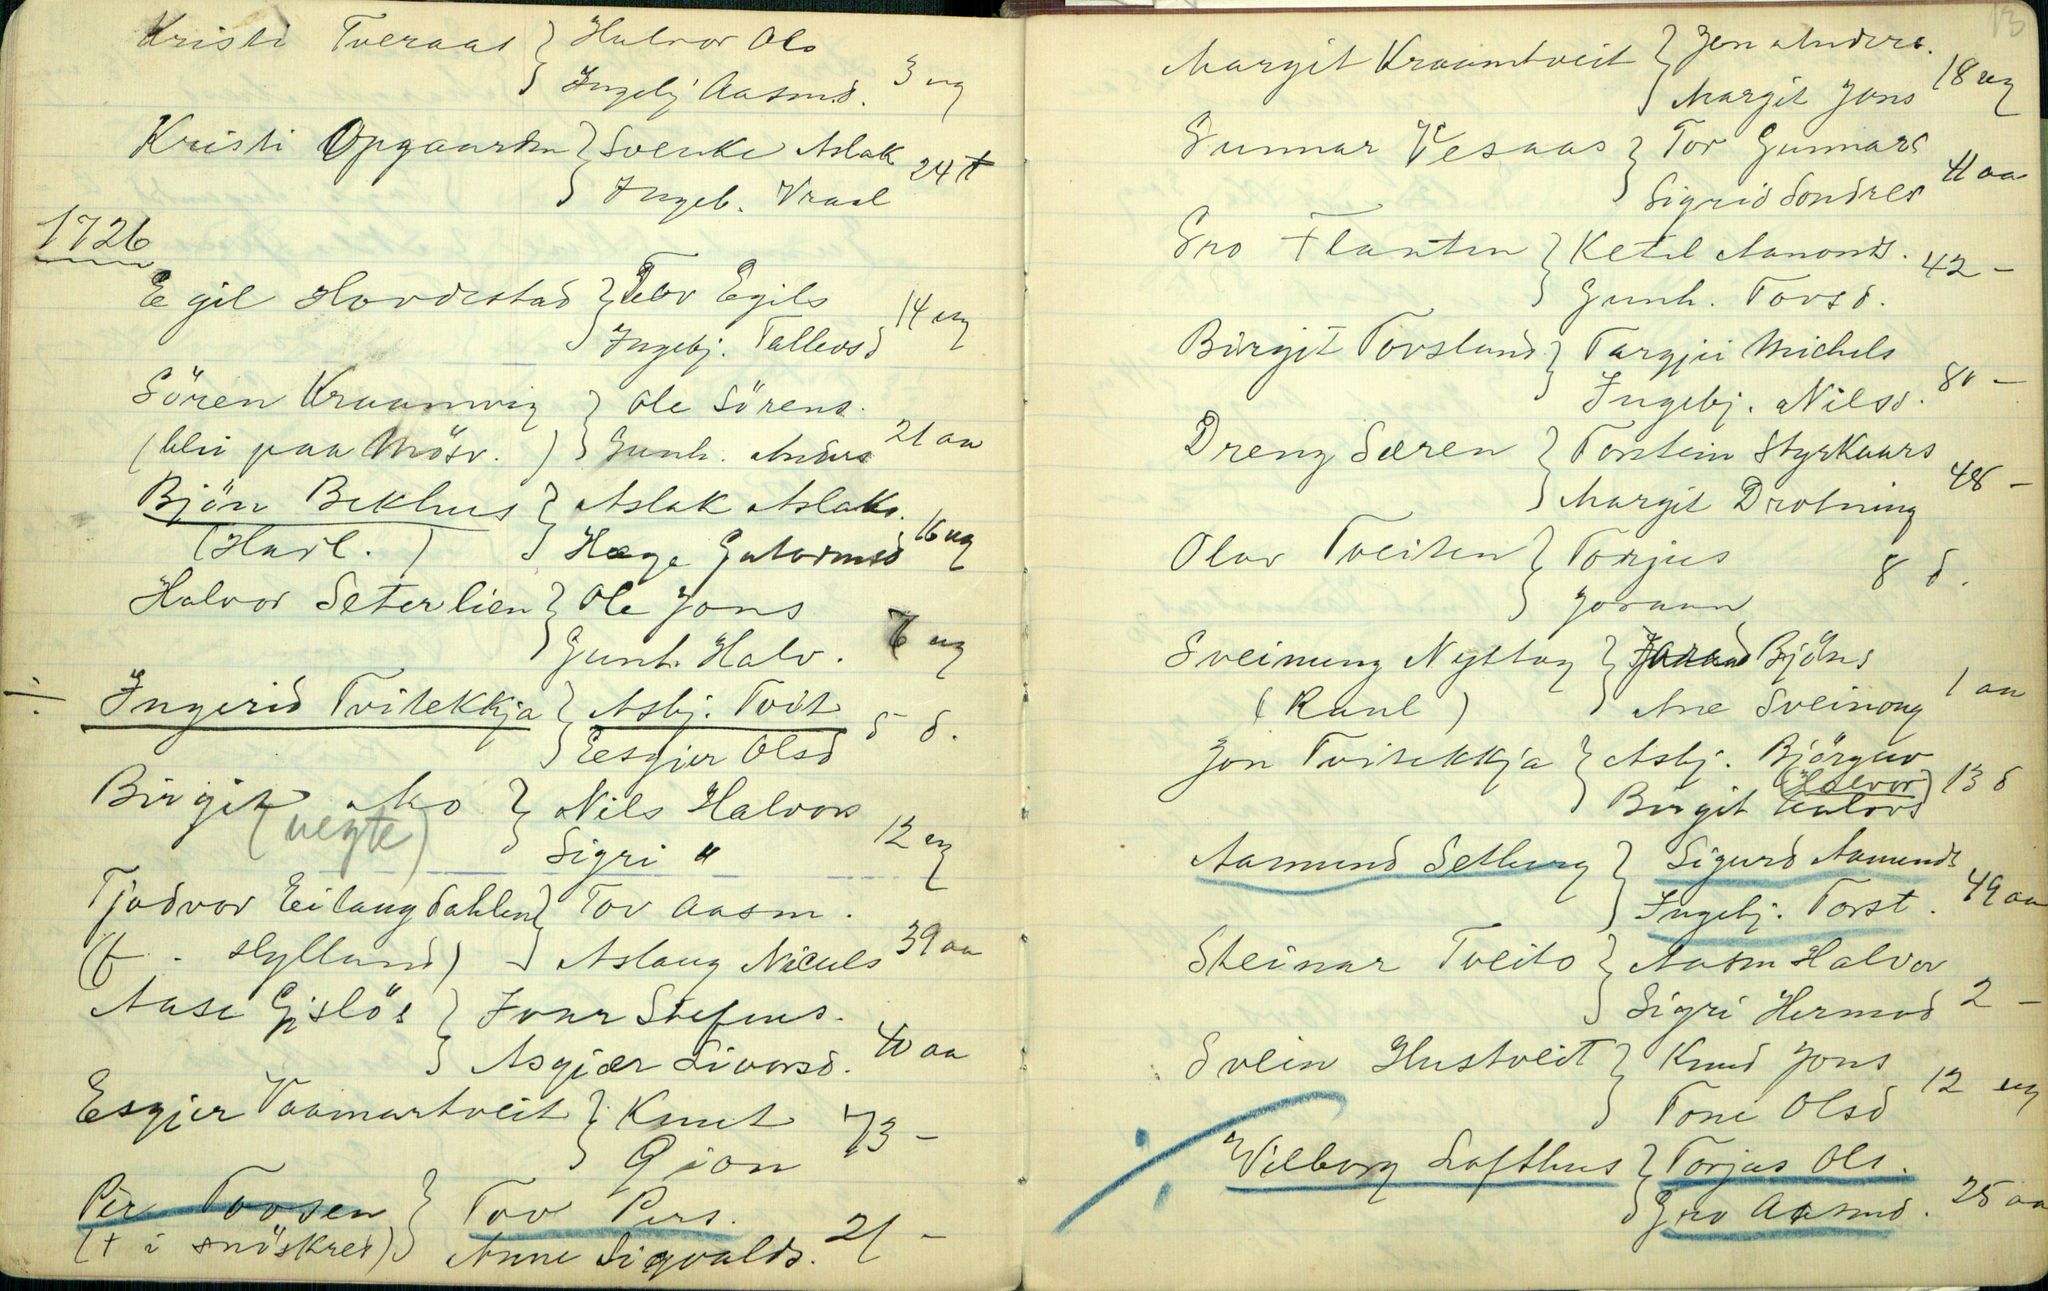 Kristi Tveraas } Halvor Ols
Ingebj Aasmd. 3 ug
Kristi Opgaarden } Svenke Aslak
Ingeb. Vraal 24 t
1726
Egil Hovdestad } Tov Egils
Ingebj. Tallevsd 14 ug
Sören Kraamvig } Ole Sörens.
(blei paa Mösv.) Gunh. Anders 21 aa
Bjön Bekhus } Aslak Aslaks.
(Harl.) Hæge Gutormsd 16 ug
Halvor Seterlien } Ole Jons
Gunh. Halv. 6 ug
÷ Ingerid Tvitekkja } Asbj. Tvit
Eesgjer Olsd 5 d.
Birgit Mo } Nils Halvors
(uegte) Sigri " 12 ug
Tjodvor Eilangdahlen } Tov Aasm.
(f. Hylland) Aslaug Niculs 39 aa
Aase Gjslös } Ivar Stefens.
Asgjær Sivorsd. 40 aa
Esgjer Vaamartveit } Knut
Gjon 73 -
Per Tovsen } Tov Pers.
(+ i snöskred) Anne Sigvalds. 21 -
13
Margit Kraamtveit } Jon Anders.
Margit Jons 18 ug
Gunnar Vesaas } Tov Gunnars
Sigrid Sondres 41 aa
Gro Flanten } Ketil Aamonds.
Gunh. Tovsd. 42 -
Birgit Tovsland } Targjei Michels
Ingebj. Nilsd. 80 -
Dreng Særen } Torstein Styrkaars
Margit Drotning 48 -
Olav Tveiten } Torjus
Joraan 8 d.
Sveinung Nystog } Bjöns
(Raul) Ane Sveinong 1 aa
Jon Tvitekkja } Asbj. Björguv
(Halvor)
Birgit 13 d
Aamund Selberg } Sigurd Aamunds
Ingebj. Torst. 49 aa
Steinar Tveito } Aasm Halvor
Sigri Hermod 2 -
Svein Hustveit } Knud Jons
Tone Olsd 12 ug
÷ Vilborg Lofthus } Torjus Ols.
Gro Aasmd. 25 aa